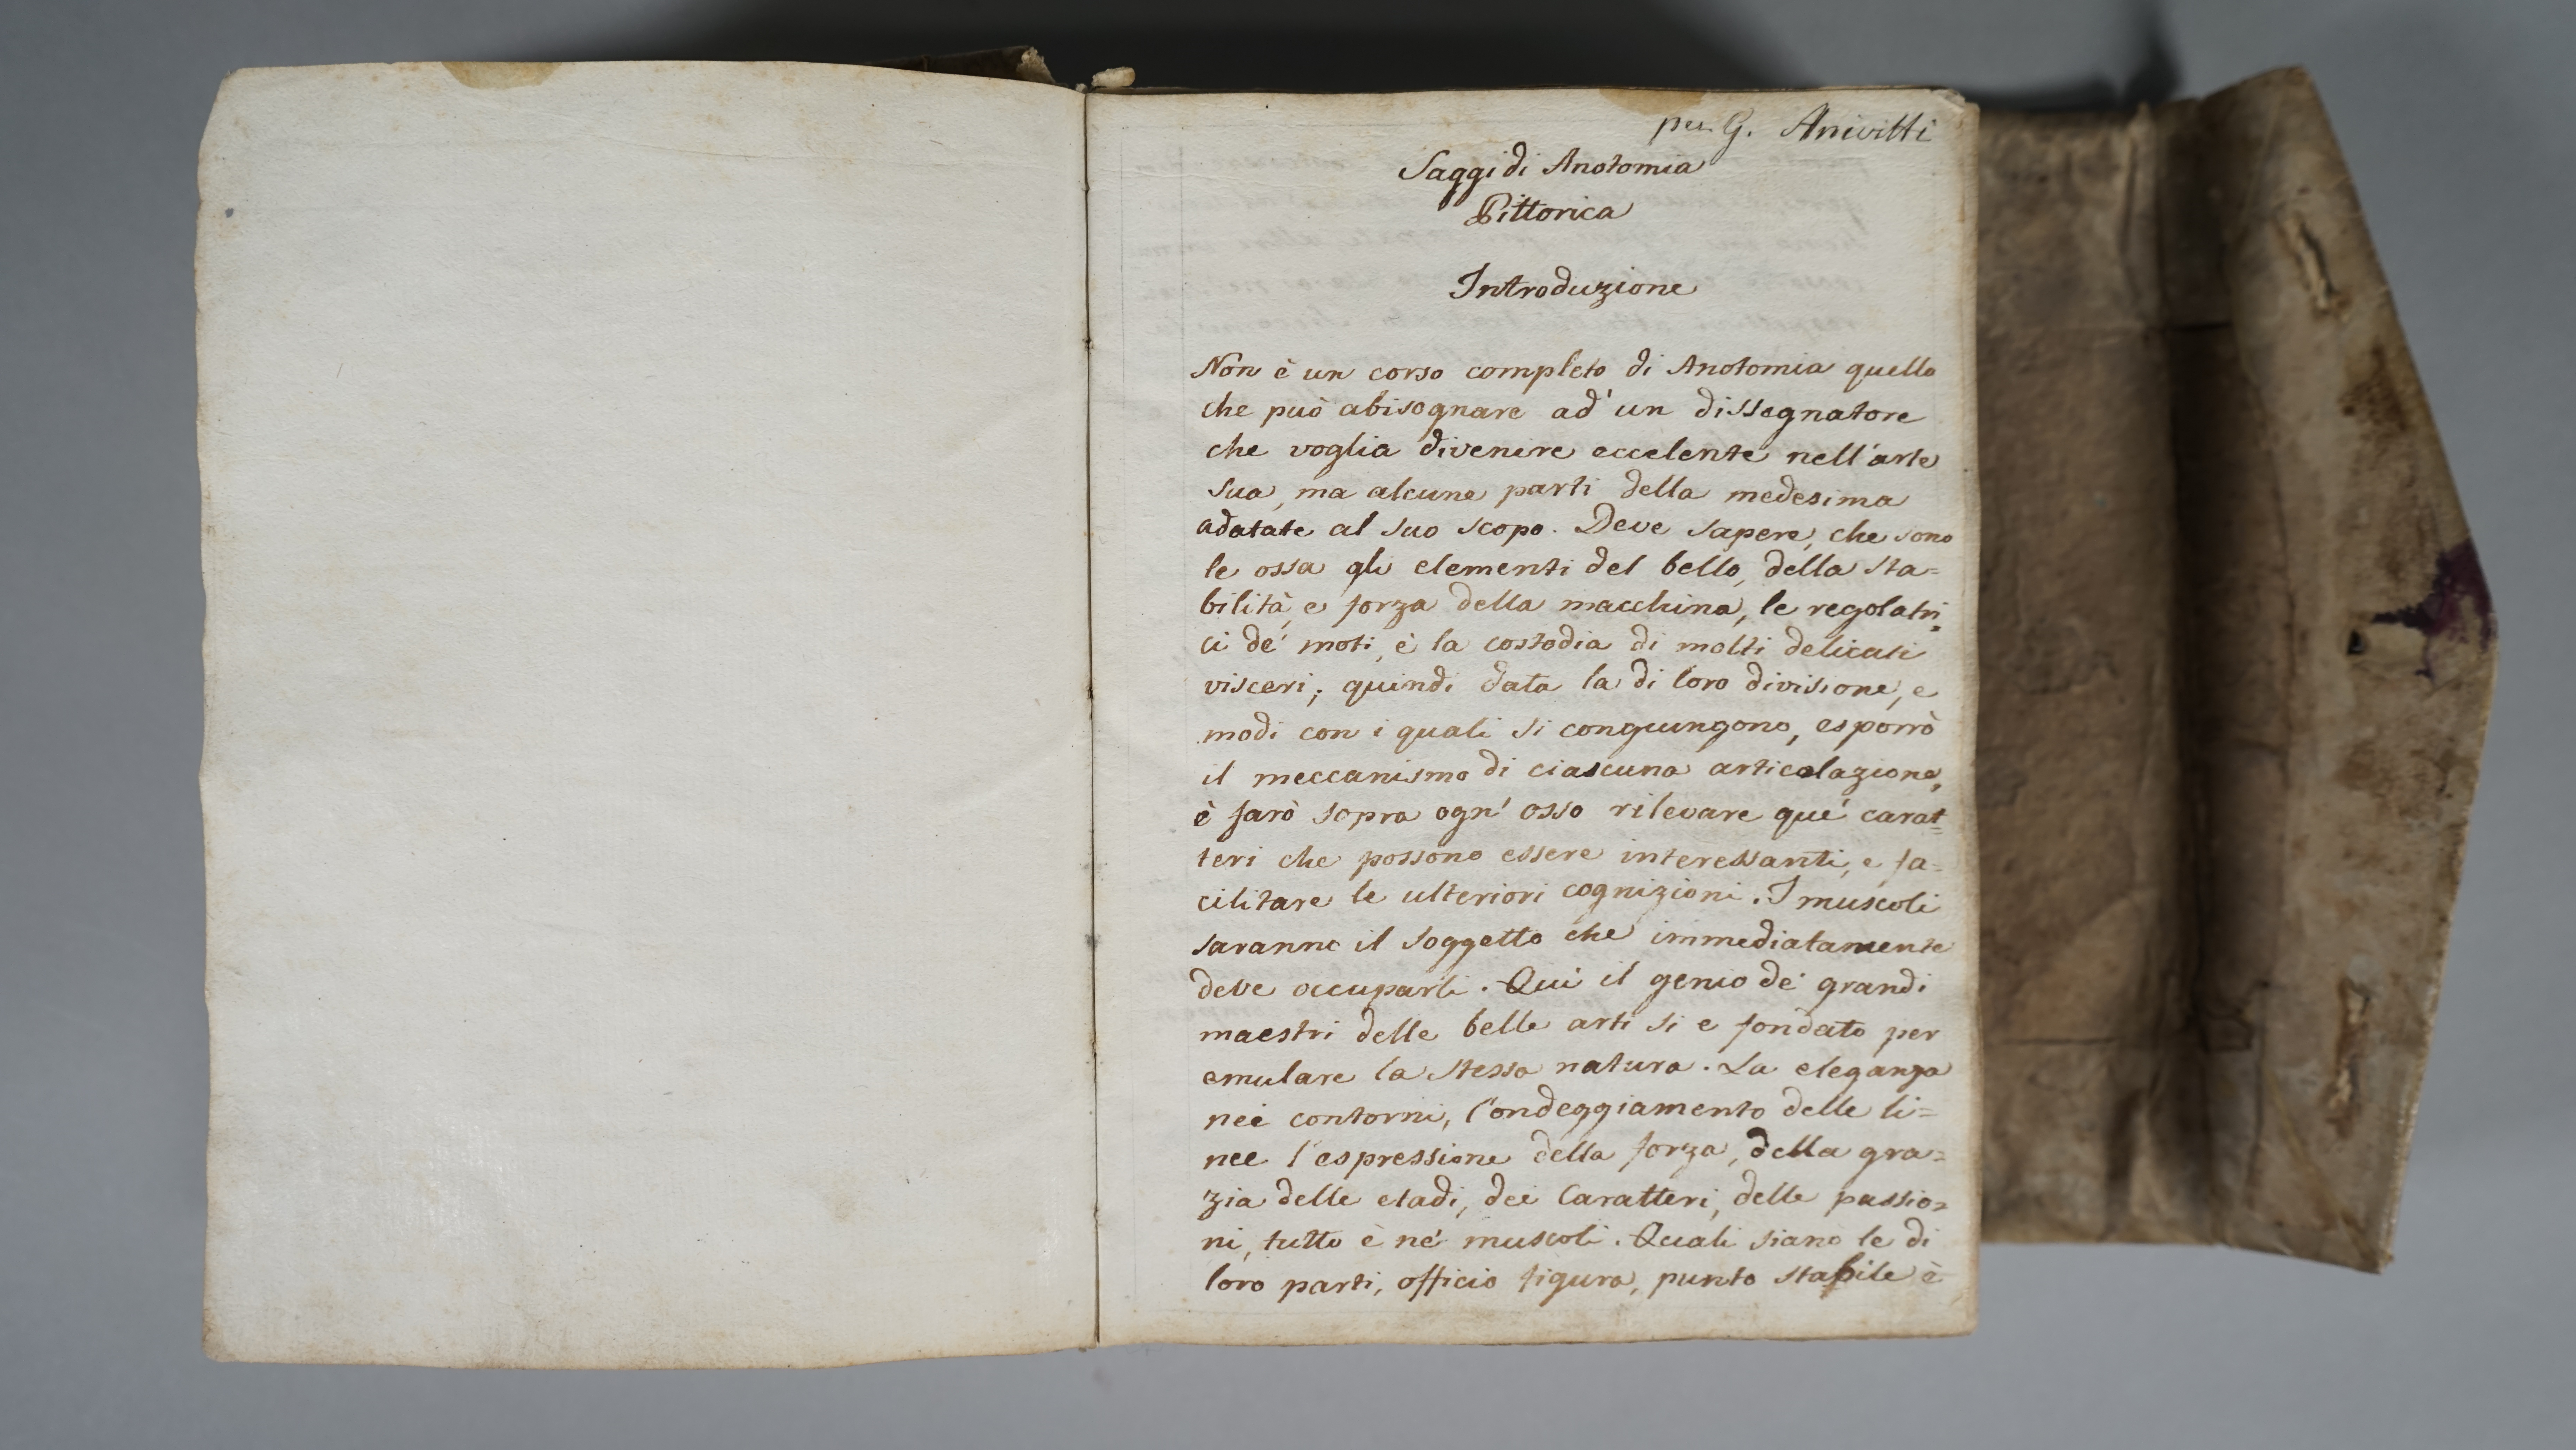 per. G. Anivitti
Saggi di Anotomia
Pittorica
Introduzione
Non è un corso completo di Anotomia quello
che può abisognare ad' un dissegnatore
che voglia divenire eccelente nell'arte
sua, ma alcune parti della medesima
adatate al suo scopo. Deve sapere, che sono
le ossa gli elementi del bello, della sta=
bilità, e forza della macchina, le regolatri=
ci de' moti, è la costodia di molti delicati
visceri; quindi data la di loro divisione, e
modi con i quali si congiungono, esporrò
il meccanismo di ciascuna articolazione,
è farò sopra ogn' osso rilevare que' carat=
teri che possono essere interessanti, e fa=
cilitare le ulteriori cognizioni. I muscoli
saranno il soggetto che immediatamente
deve occuparli. Qui il genio de' grandi
maestri delle belle arti si e fondato per
emulare la stessa natura. La eleganza
nei contorni, l'ondeggiamento delle li=
nee l'espressione della forza, della gra=
zia delle etadi, dei Caratteri, delle passio=
ni, tutto è ne' muscoli. Quali siano le di
loro parti, officio figura, punto stabile è